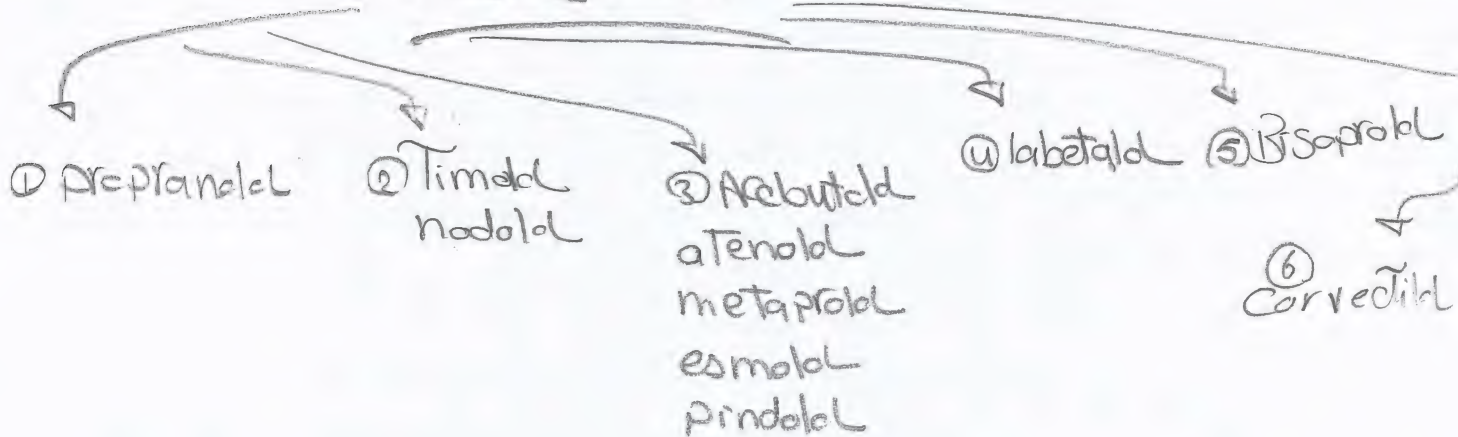 ① propranolol
② Timolol
nadolol
③ Acebutolol
atenolol
metaprolol
esmolol
pindolol
④ labetalol
⑤ Bisoprolol
⑥
Carvedilol